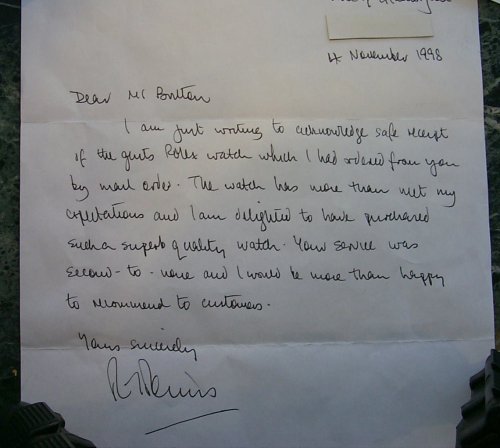 4 November 1998
Dear Mr Britton
I am just writing to acknowledge safe receipt
of the gents Rolex watch which I had ordered from you
by mail order. The watch has more than met my
expectations and I am delighted to have purchased
such a superb quality watch. Your service was
second-to-none and I would be more than happy
to recommend to customers.
Yours sincerely